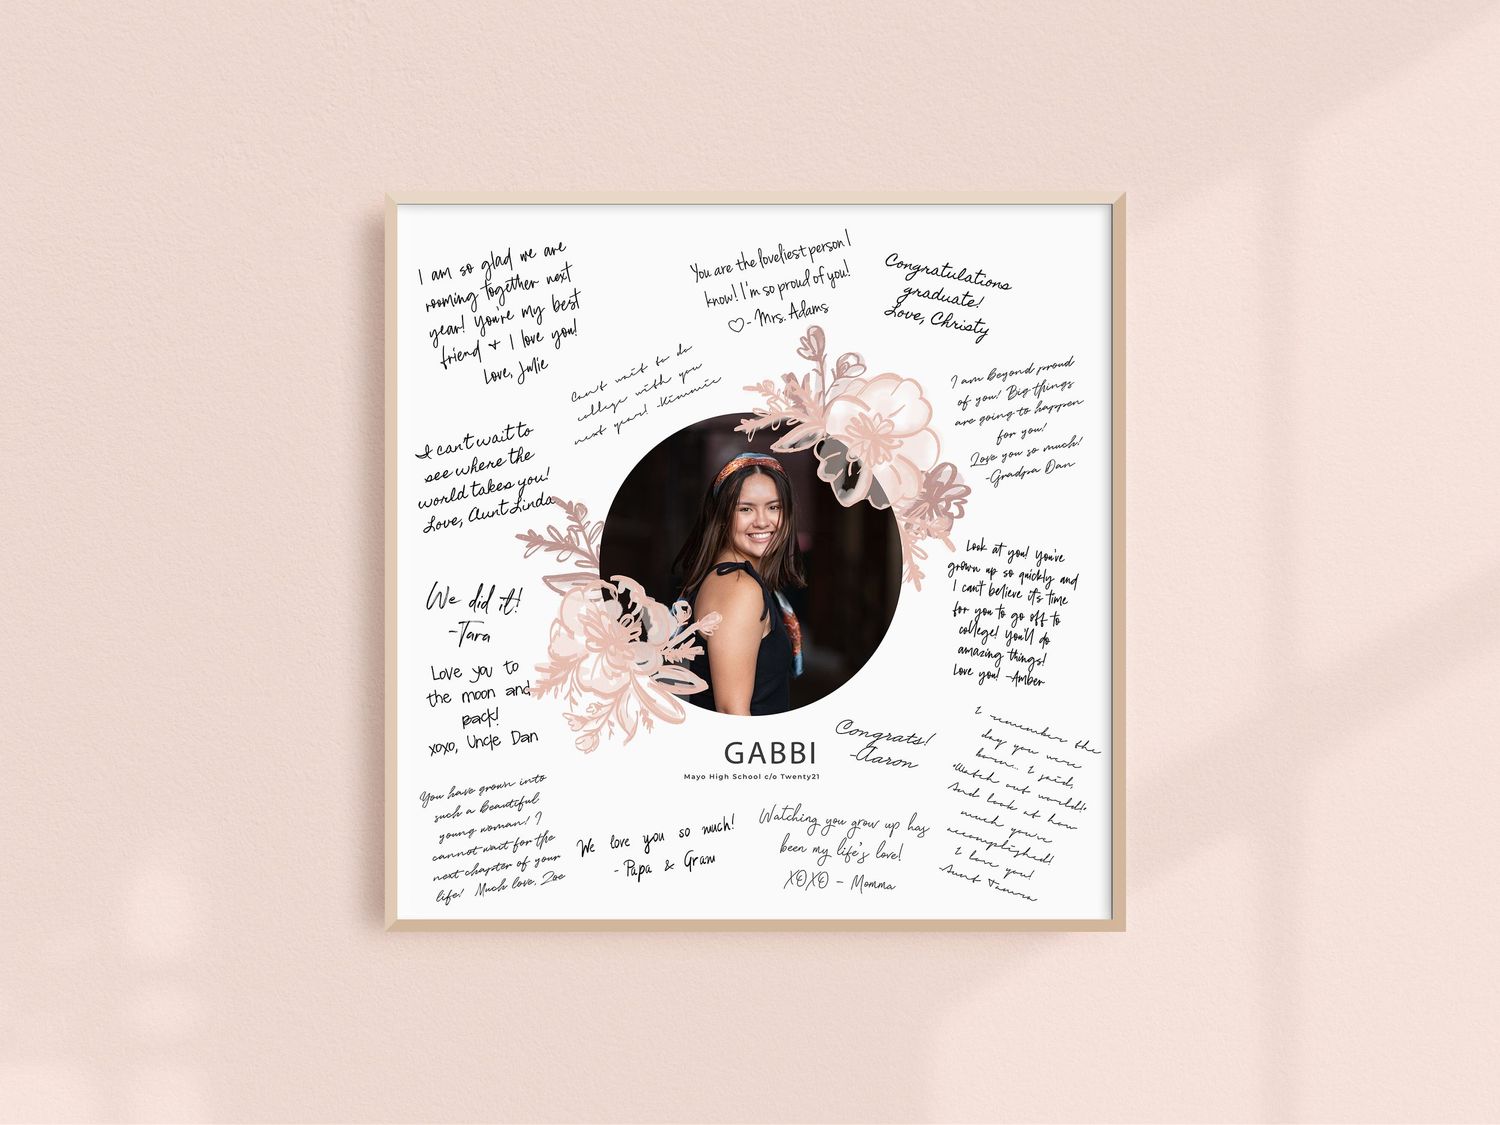 I am so glad we are
rooming together next
year! You're my best
friend & I love you!
Love, Julie
You are the loveliest person I
know! I'm so proud of you!
♡- Mrs. Adams
Congratulations
graduate!
Love, Christy
Can't wait to do
college with you
next year! -Kimmie
I am beyond proud
of you! Big things
are going to happen
for you!
Love you so much!
-Gradpa Dan
I can't wait to
see where the
world takes you!
Love, Aunt Linda
Look at you! You've
grown up so quickly and
I can't believe it's time
for you to go off to
college! You'll do
amazing things!
Love you! -Amber
We did it!
-Tara
Love you to
the moon and
Back!
xoxo, Uncle Dan
GABBI
Mayo High School c/o Twenty21
Congrats!
-Aaron
I remember the
day you were
born... I said,
"Watch out world!"
And look at how
much you've
accomplished!
I love you!
Aunt Tamra
You have grown into
such a beautiful
young woman! I
cannot wait for the
next chapter of your
life! Much love, Zoe
We love you so much!
- Papa & Gram
Watching you grow up has
been my life's love!
XOXO - Momma